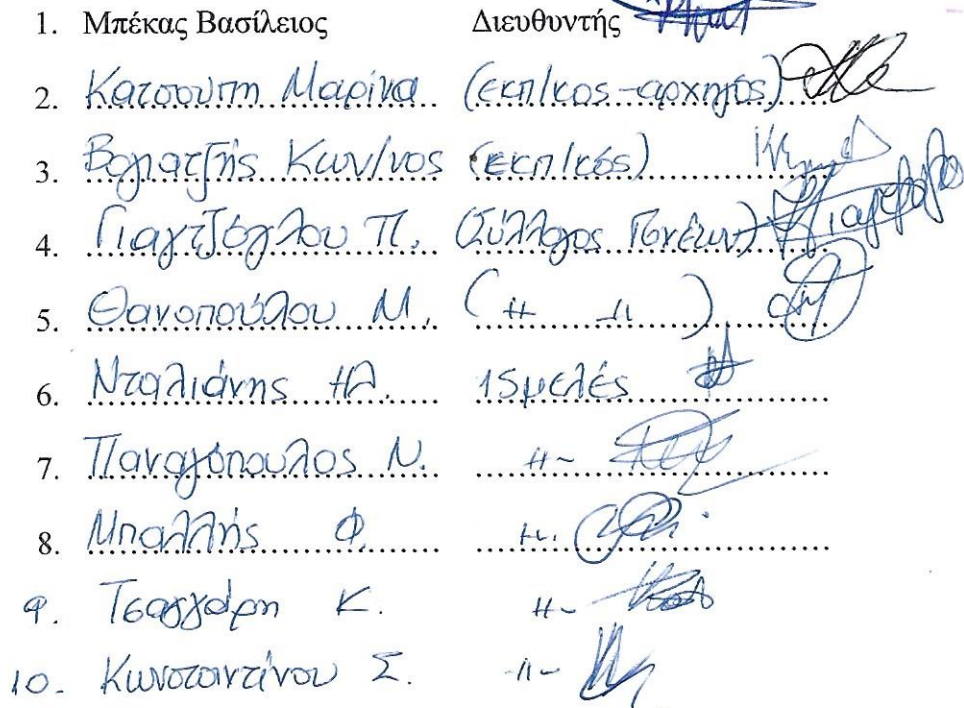 1. Μπέκας Βασίλειος Διευθυντής
2. Κατσούπη Μαρίνα (εκπ/κος-αρχηγός)
3. Βογιατζής Κων/νος (εκπ/κός)
4. Γιαγτζόγλου Π. (Σύλλογος Γονέων)
5. Θανοπούλου Μ. ( -||- -||- )
6. Νταλιάνης Ηλ. 15μελές
7. Παναγόπουλος Ν. -||-
8. Μπαλλής Φ. -||-
9. Τσαγγάρη Κ. -||-
10. Κωνσταντίνου Σ. -||-